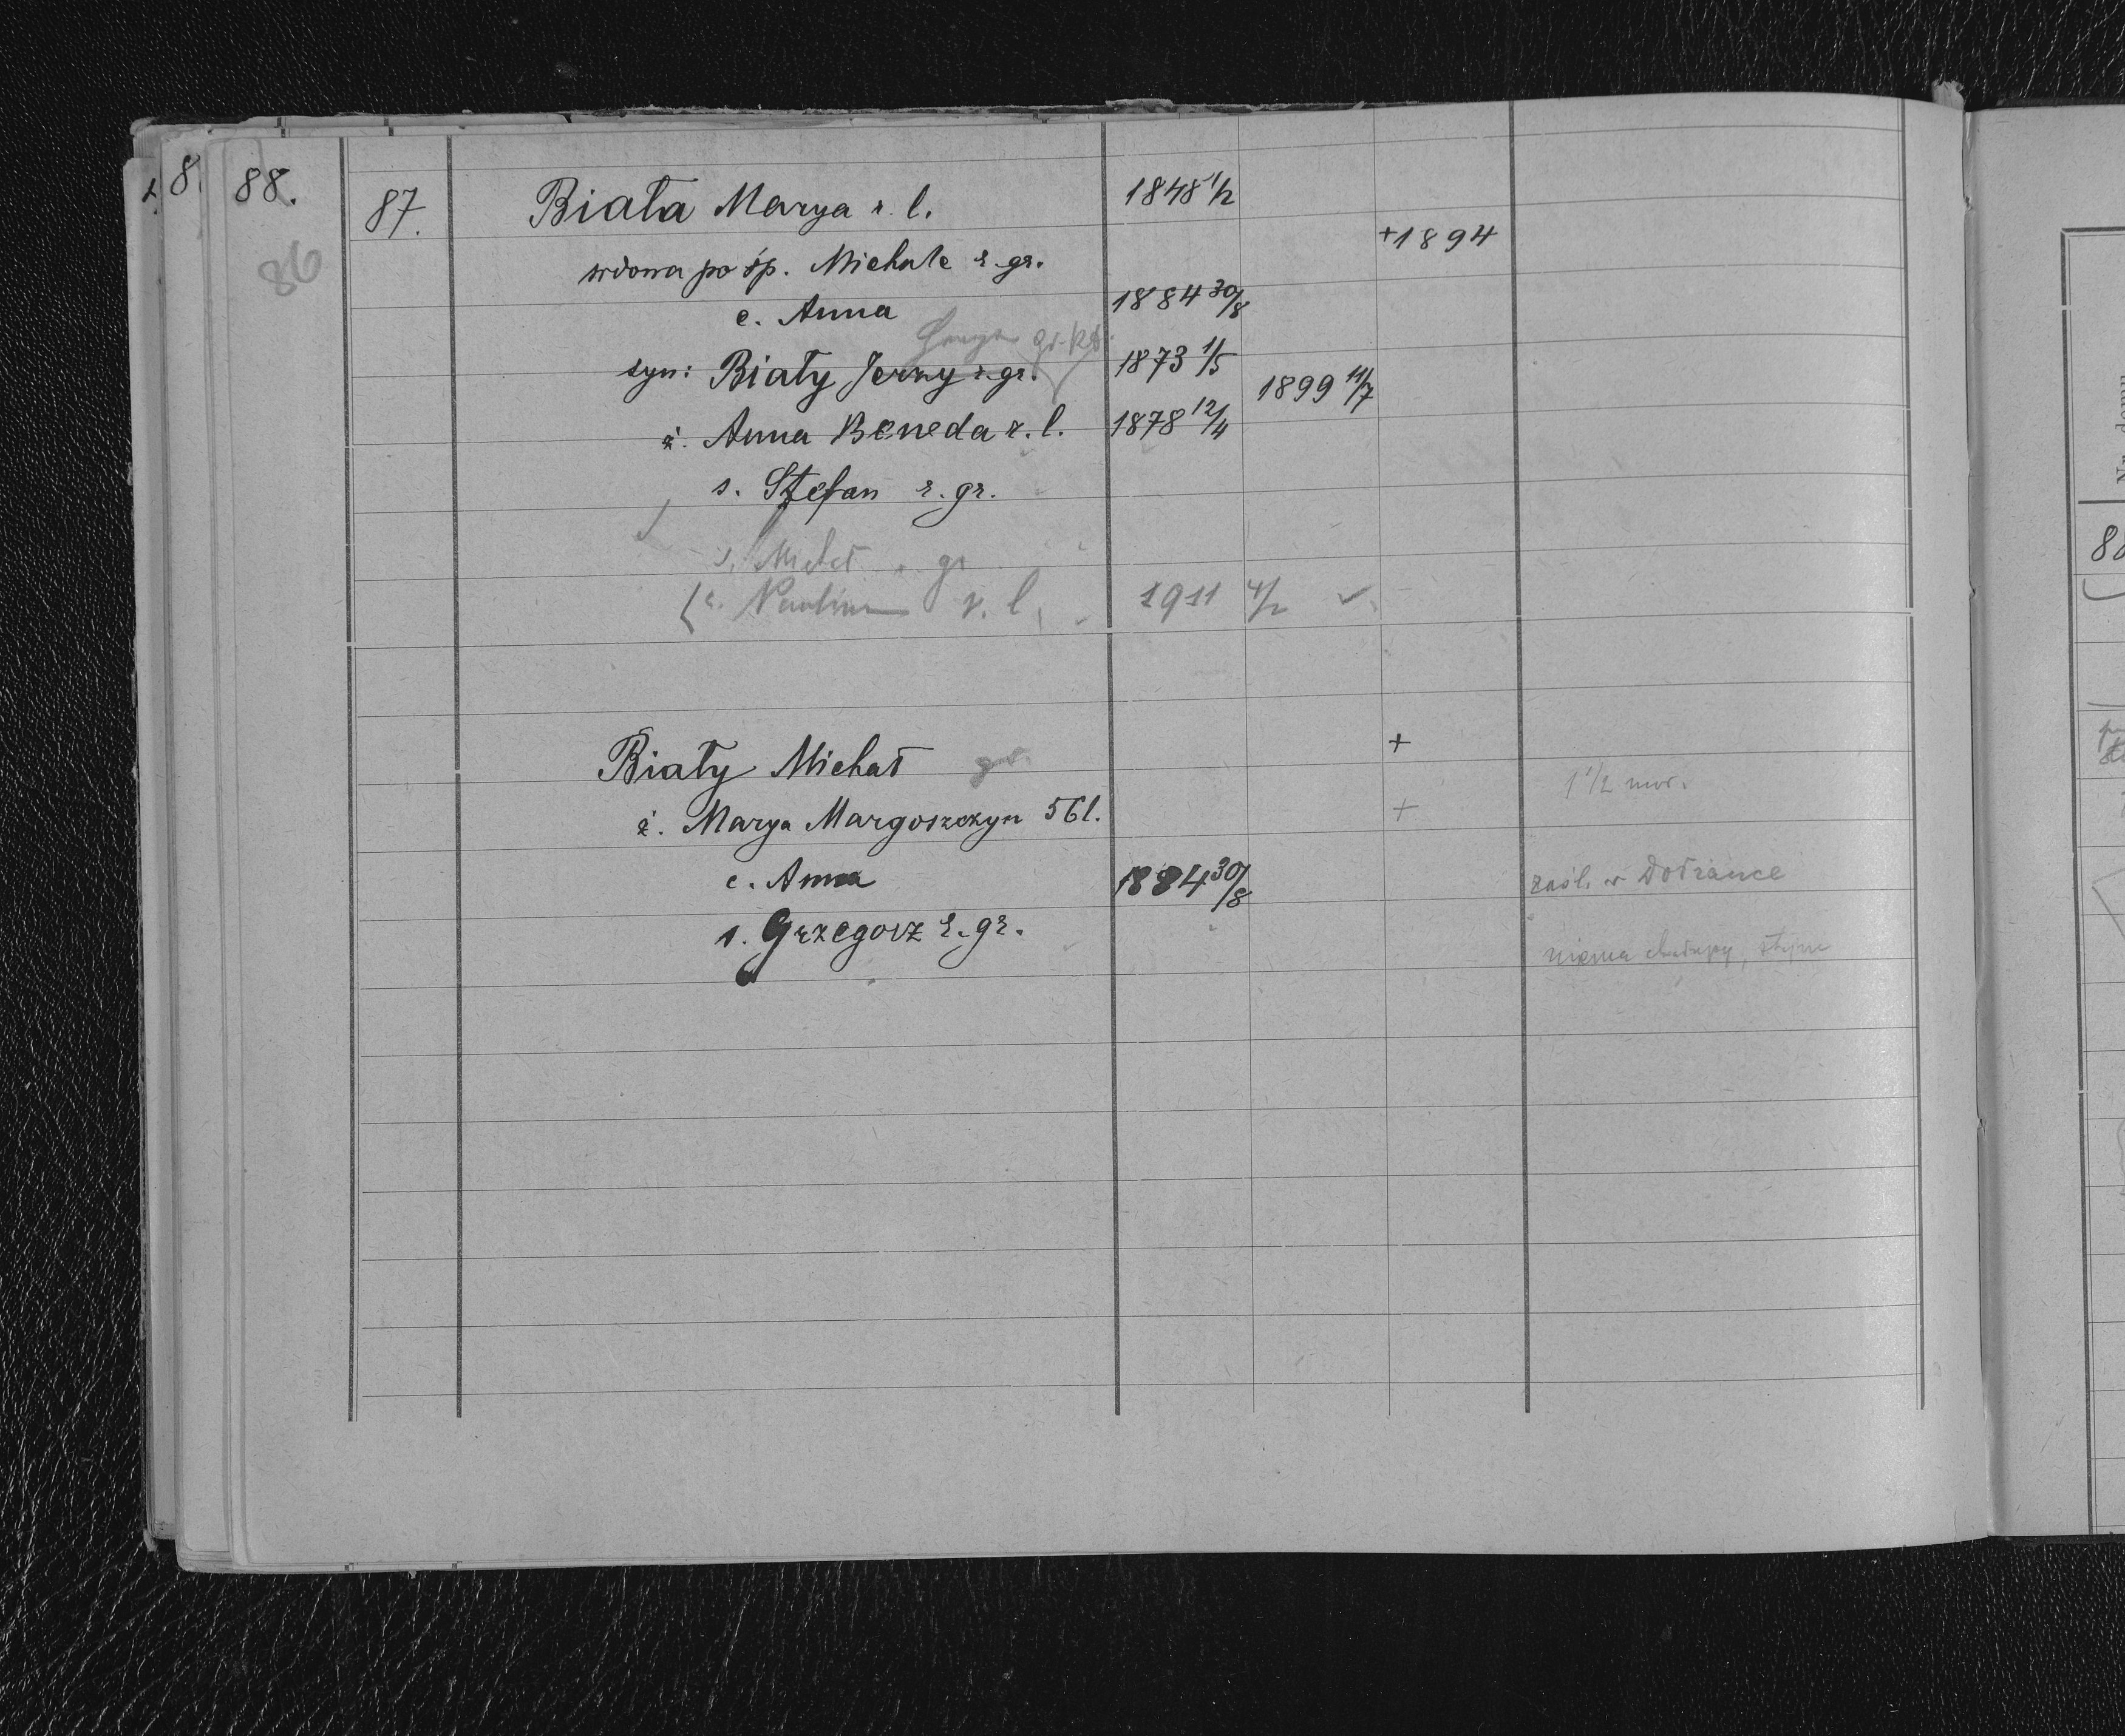 8.
88.
86
87.
Biała Marya r. l. 1848 1/2
wdowa po śp. Michale r. gr. +1894
c. Anna 1884 30/8
gr. kat.
syn: Biały Jerzy r. gr. 1873 1/5 1899 11/7
ż. Anna Beneda r. l. 1878 12/4
s. Stefan r. gr.
s. Michał r. gr
c. Paulina r. l. 1911 4/2
Biały Michał +
1 1/2 mor.
ż. Marya Margoszczyn 56 l. +
c. Anna 1884 30/8
w Dołżance
s. Grzegorz r. gr.
niema chałupy,